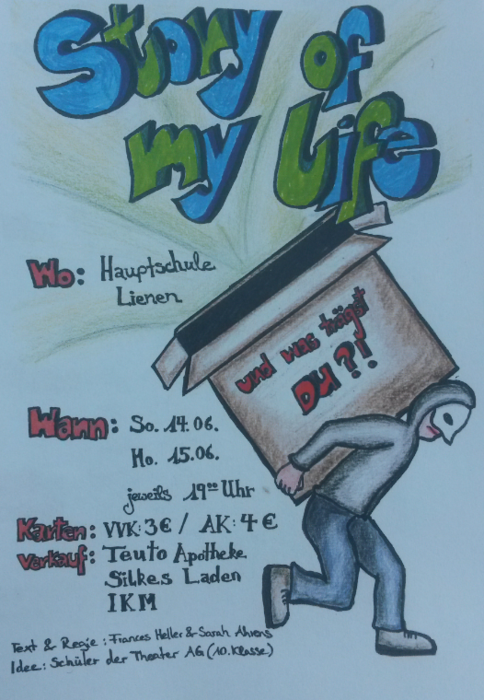 Story of
my Life
Wo: Hauptschule
Lienen
und was trägst
DU?!
Wann: So. 14.06.
Mo. 15.06.
jeweils 19⁰⁰ Uhr
Karten: VVK: 3€ / AK: 4€
verkauf: Teuto Apotheke
Silkes Laden
IKM
Text & Regie: Frances Heller & Sarah Ahrens
Idee: Schüler der Theater AG (10. Klasse)